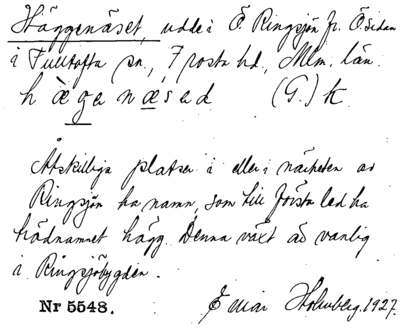 Häggenäset, udde i Ö. Ringsjön fr. Ö. sidan
i Fulltofta sn., Frosta hd., Mlm. län.
h æ̀ g e n æ s e d (G.) k
Åtskilliga platser i eller i närheten av
Ringsjön ha namn, som till första led ha
trädnamnet hägg. Denna växt är vanlig
i Ringsjöbygden.
Nr 5548. Holmberg. 1927.